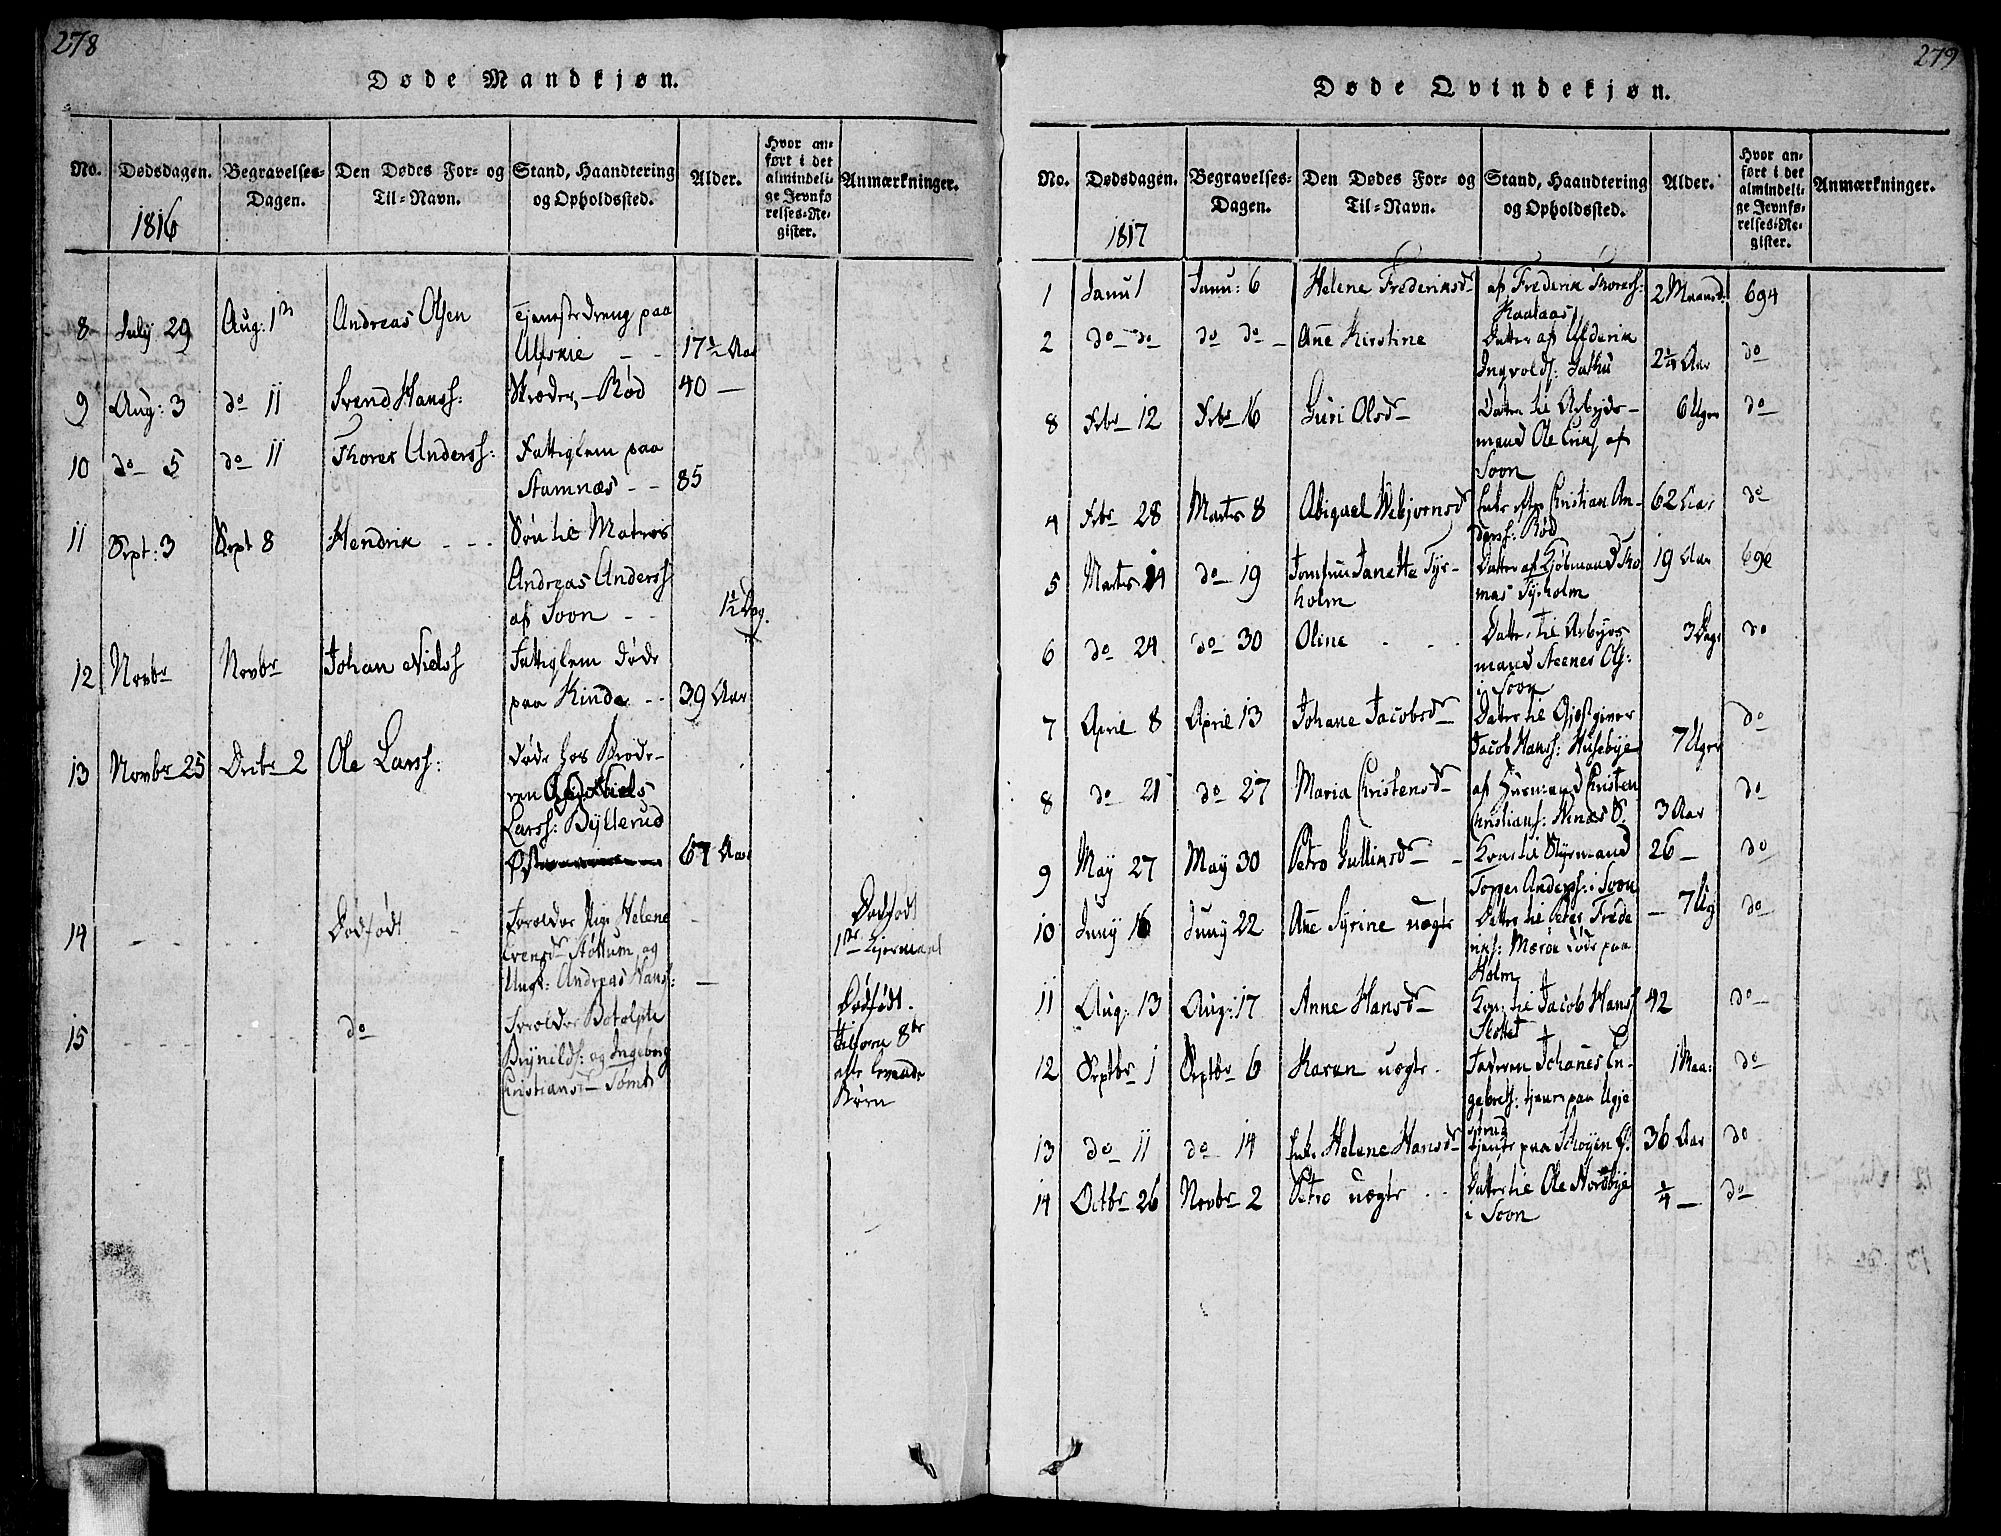 278
Døde Mandkjøn.
No.
Dødsdagen.
1816
Begravelses-
Dagen.
Den Dødes For- og
Til-Navn.
Stand, Haandtering
og Opholdssted.
Alder.
Hvor an-
ført i det
almindeli-
ge Jevnfø
relses-Re-
gister.
Anmærkninger.
8 July 29 Aug: 1 Andreas Olsen Tjenestedreng paa
17½ Aar
9 Aug: 3 do 11 Svend Hanss: Skræder, Rød 40 —
10 do 5 do 11 Thores Anderss: Fattiglem paa
Stamnæs - - 85
11 Sept: 3 Sept 8 Hendrik - - - Søn til Matros
Andreas Anderss
af Soon - - 1½ Dag.
12 Novbr Novbr Johan Niels Fattiglem døde
paa Kinde - - 39 Aar
13 Novbr 25 Decbr 2 Ole Larss: døde hos Brode-
ren Niels
Larss: Byllerud
67 Aar
14 - - - - Dødfødt Forældre Pige Helene
Svensd Støttum og
Ungk: Andreas Hans: —
Dødfødt
1ste Leiermaal
15 - - - - do Forældre
Brynilds: og Ingeborg
Christiansd
Dødfødt.
tilforn 8te
ægte levende
Børn
279
Døde Qvindekjøn.
No.
Dødsdagen.
1817
Begravelses-
Dagen.
Den Dødes For- og
Til-Navn.
Stand, Haandtering
og Opholdssted.
Alder.
Hvor an-
ført i det
almindeli-
ge Jevnfø-
relses-Re-
gister.
Anmærkninger.
1 Janu 1 Janu: 6 Helene Frederiksd af Frederik Thoress: 2 Maaned: 694
Kaalaas
2 do do do do - Ane Kirstine Datter af
Ingvolds: 2¼ Aar do
8 Febr 12 Febr 16 Guri Olsd Datter til Arbejds- 6 Uger do
mand Ole af
Soon
4 Febr 28 Marts 8 Abigael Webjørnsd Enke efter Christian An- 62 Aar do
derss: Rød
5 Marts 14 do 19 Jomfru Janette Tyr- Datter af Kjøbmand Tho 19 Aar 696
holm mas Tyrholm
6 do 24 do 30 Oline - - - Datter til Arbejds 3 Dage do
mand Steener Ols:
i Soon
7 April 8 April 13 Johane Jacobsd Datter til Gjestgiver do
Jacob Hanss: Husebye 7 Uger
8 do 21 do 27 Maria Christensd af Huusmand Christen do
Christians: 3 Aar
9 May 27 May 30 Petro Gullinsd - Kone til Styrmand 26 — do
Torger Anderss: i Soon
10 Juny 16 Juny 22 Ane Syrine uægte Datter til Peder Frede — 7 Ug do
riks: Mærøe døde paa
Holm
11 Aug: 13 Aug: 17 Anne Hansd Kone til Jacob Hanss 42 do
Slottet
12 Septbr 1 Septbr 6 Karen uægte. Faderen Johanes En- 1 Maa: do
gebrets: tjener paa Ugje
sprud
13 do 11 do 14 Enk. Helene Hansd tjente paa Schøyen Ø: 36 Aar do
14 Octbr 26 Novbr 2 Petro uægte - - Datter til Ole Nordbye ¼ — do
i Soon